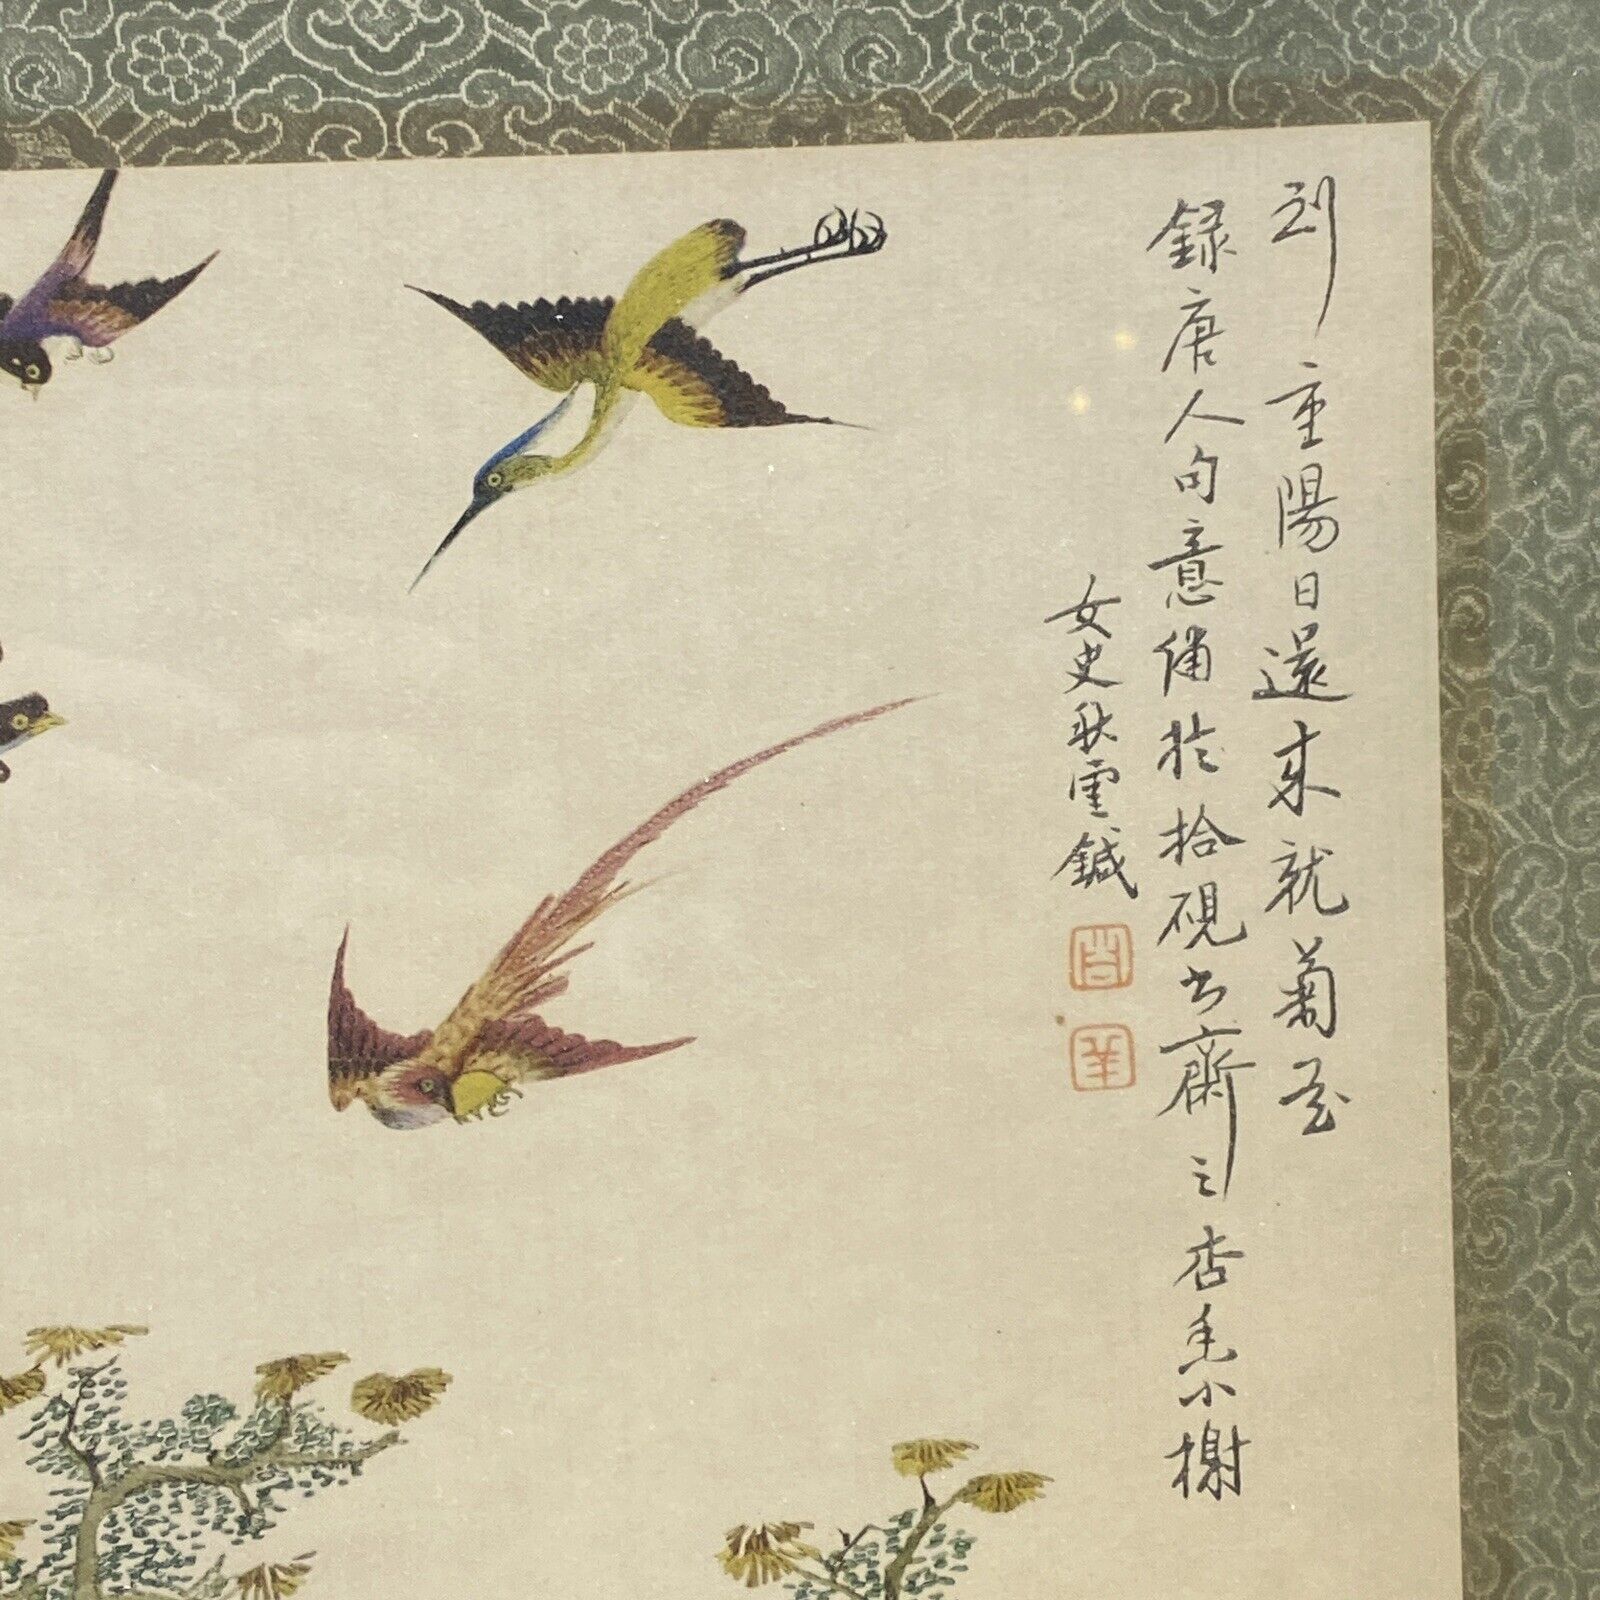 到重陽日還來就菊花
錄唐人句意繡於拾硯書齋之杏香小榭
女史秋雲鍼